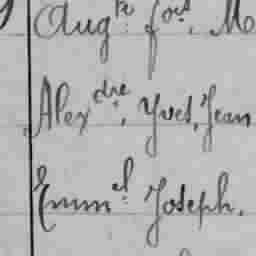 Aug^te. f^ois. M
Alex^dre. Yves, Jean
Emm^el. Joseph.